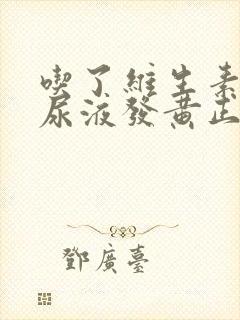 喫了維生素
尿液發黃正
鄧廣臺